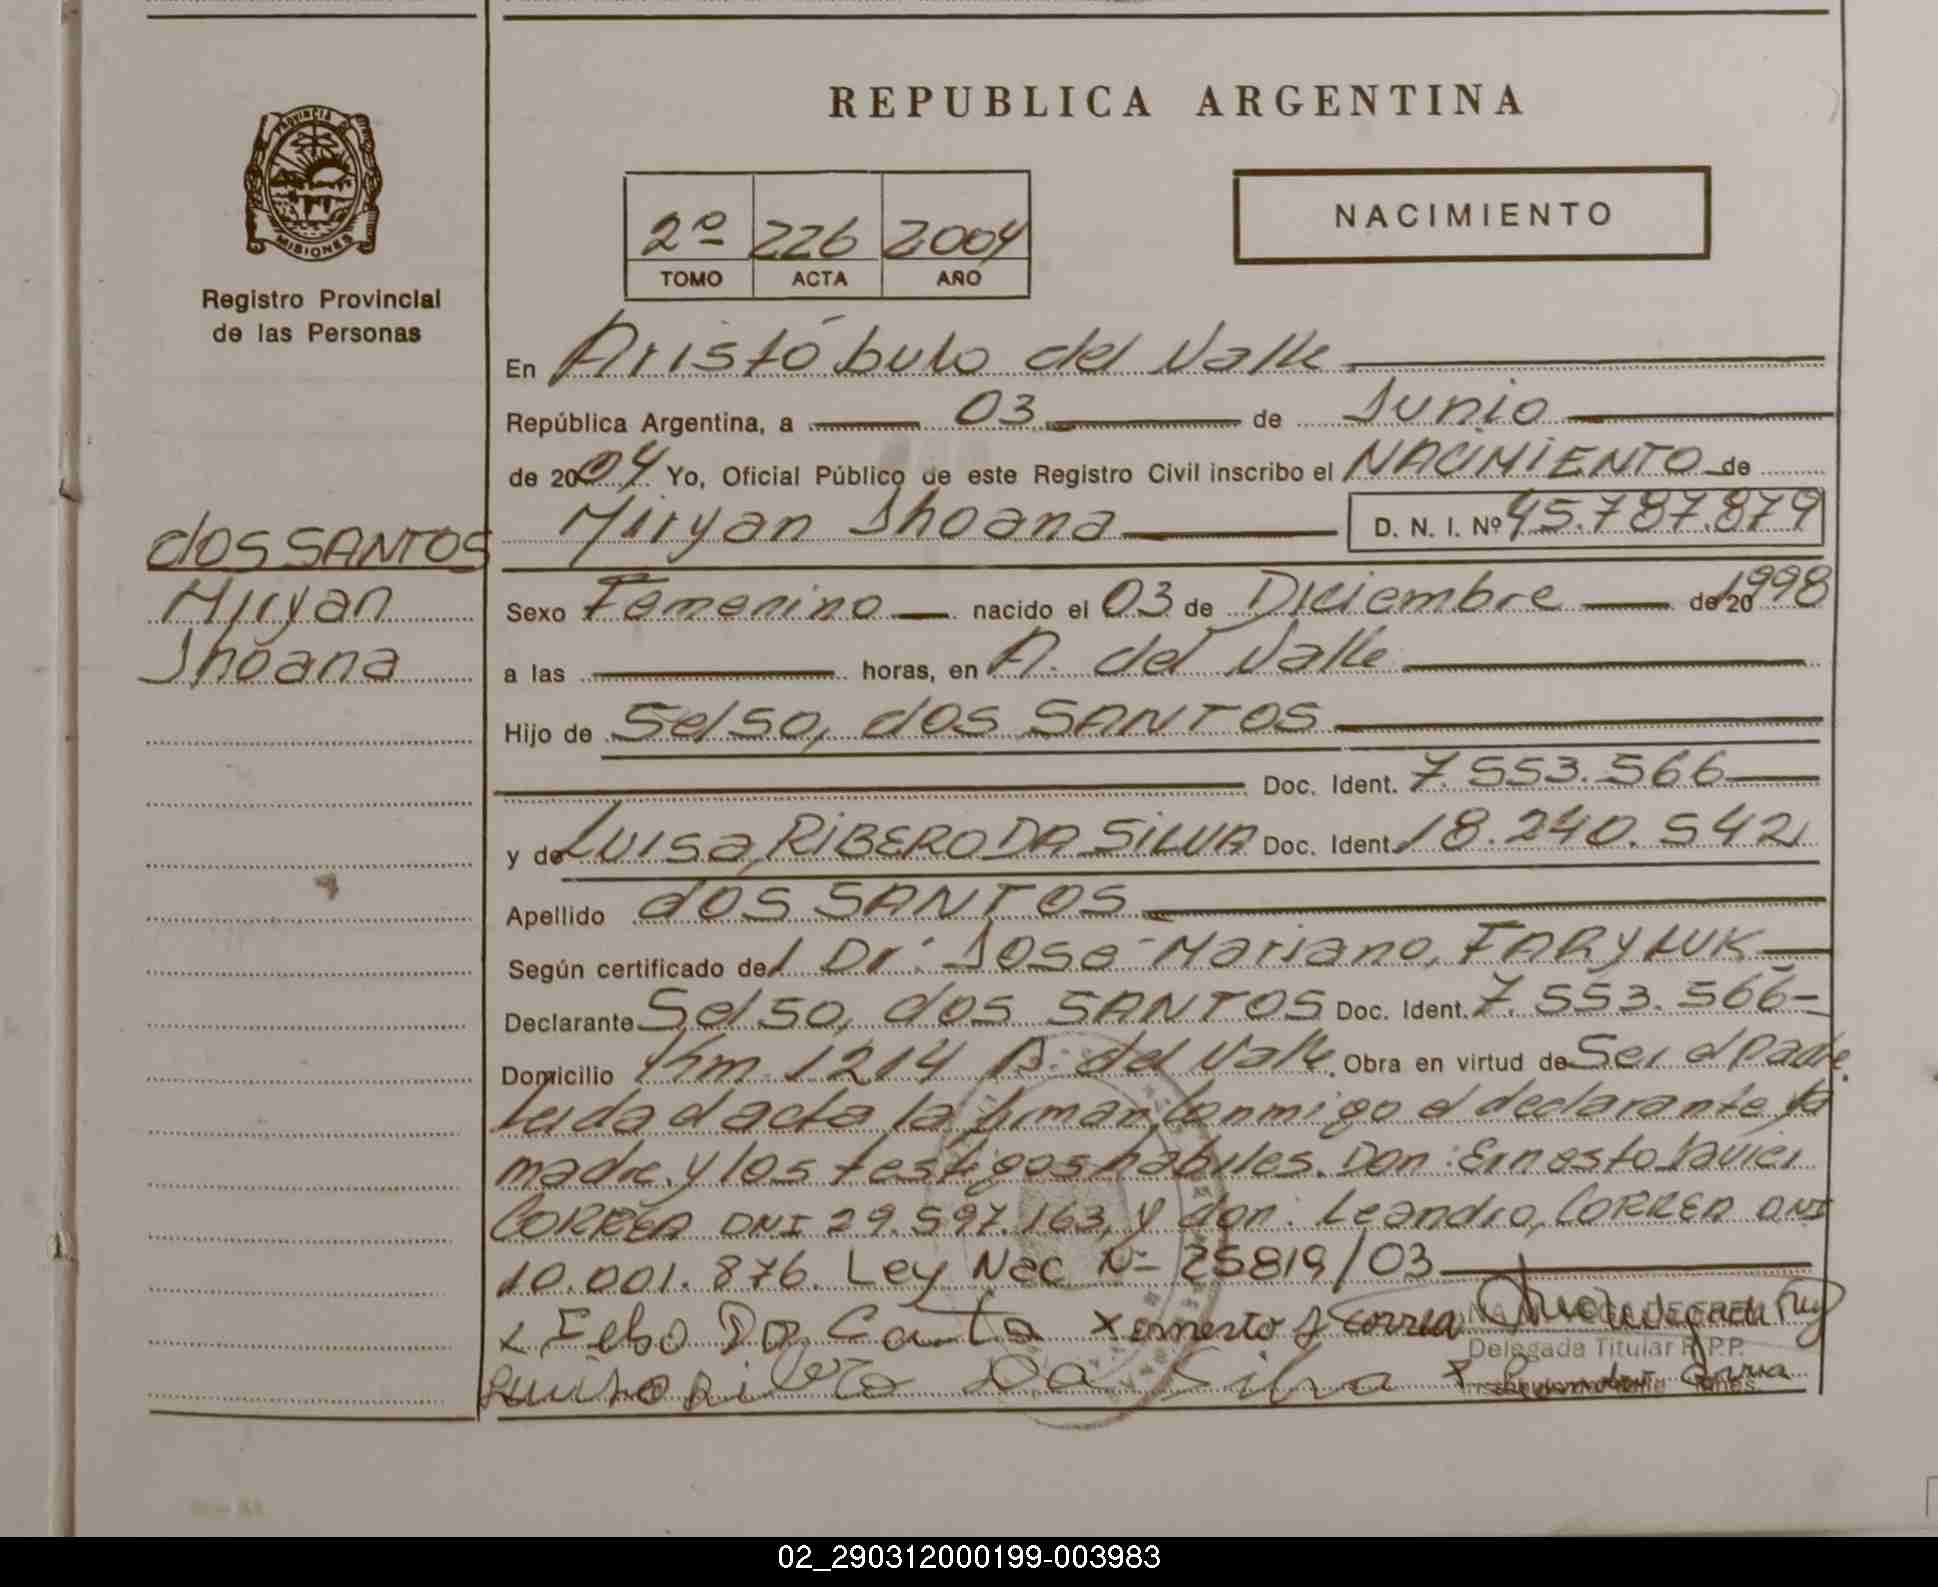 REPUBLICA ARGENTINA
PROVINCIA DE MISIONES
Registro Provincial
de las Personas
2º 226 2004
TOMO ACTA AÑO
NACIMIENTO
En Aristóbulo del Valle
República Argentina, a 03 de Junio
de 2004 Yo, Oficial Público de este Registro Civil inscribo el NACIMIENTO de
Miryan Jhoana D. N. I. Nº 45.787.879
dOS SANTOS
Miryan
Jhoana
Sexo Femenino nacido el 03 de Diciembre de 20 1998
a las horas, en A. del Valle
Hijo de Selso, dOS SANTOS
Doc. Ident. 7.553.566
y de Luisa, RIBERO DA SILVA Doc. Ident. 18.240.542
Apellido dOS SANTOS
Según certificado del Dr: José Mariano, FARYLUK
Declarante Selso, dOS SANTOS Doc. Ident. 7.553.566-
Domicilio Km 1214 A. del Valle. Obra en virtud de Ser el Padre.
Leida el acta la firman conmigo el declarante, la
madre, y los testigos habiles. Don: Ernesto Javier
CORREA DNI 29.597.163, y don: Leandro, CORREA DNI
10.001.876. Ley Nac Nº 25819/03
x ernesto J Correa
Delegada Titular R.P.P.
Da Silva x Correa
02_290312000199-003983